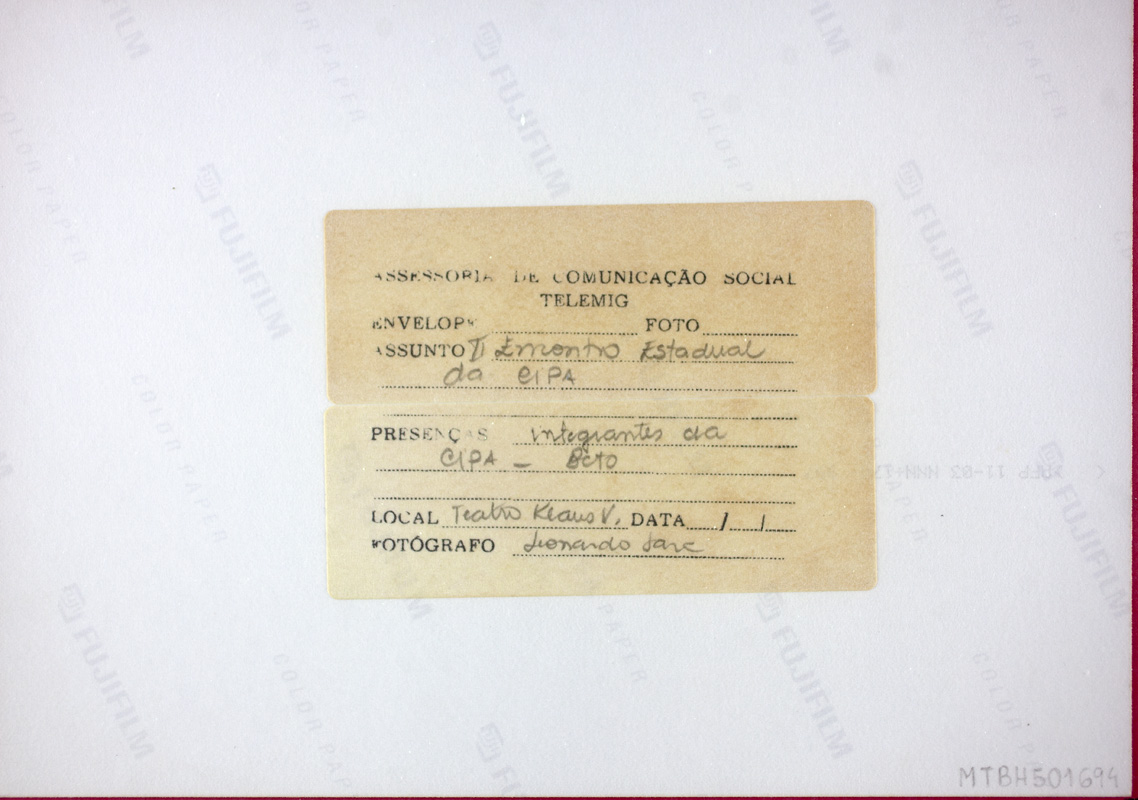 ASSESSORIA DE COMUNICAÇÃO SOCIAL
TELEMIG
ENVELOPE FOTO
ASSUNTO II Encontro Estadual
da CIPA
PRESENÇAS integrantes da
CIPA -
LOCAL Teatro Klaus V. DATA / /
FOTÓGRAFO Leonardo
FUJIFILM
COLOR PAPER
MTBH501694